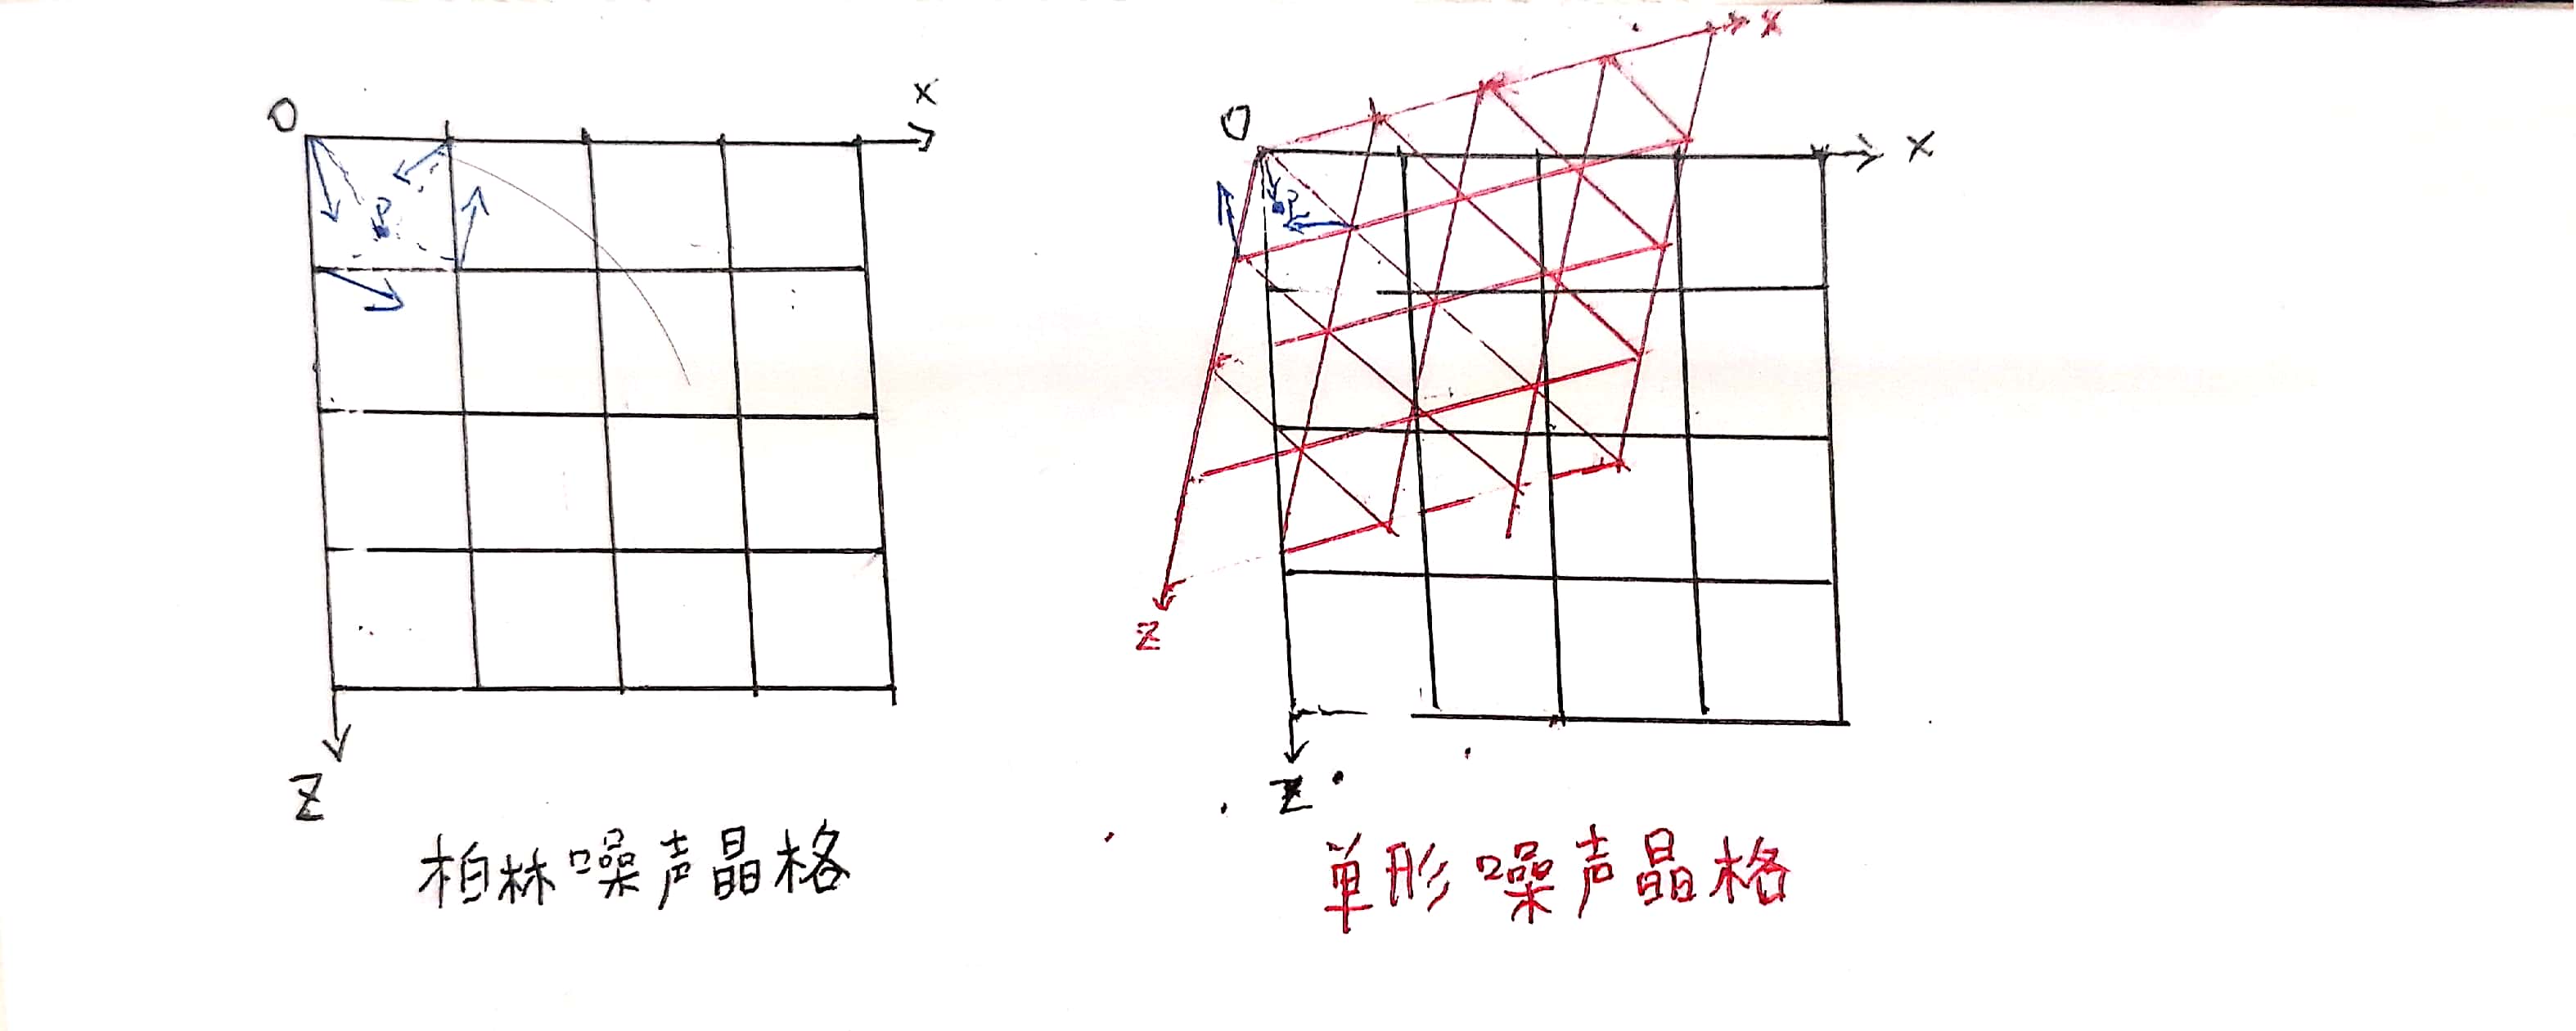 O
X
P
Z
柏林噪声晶格
X
O
X
P
Z
Z
单形噪声晶格